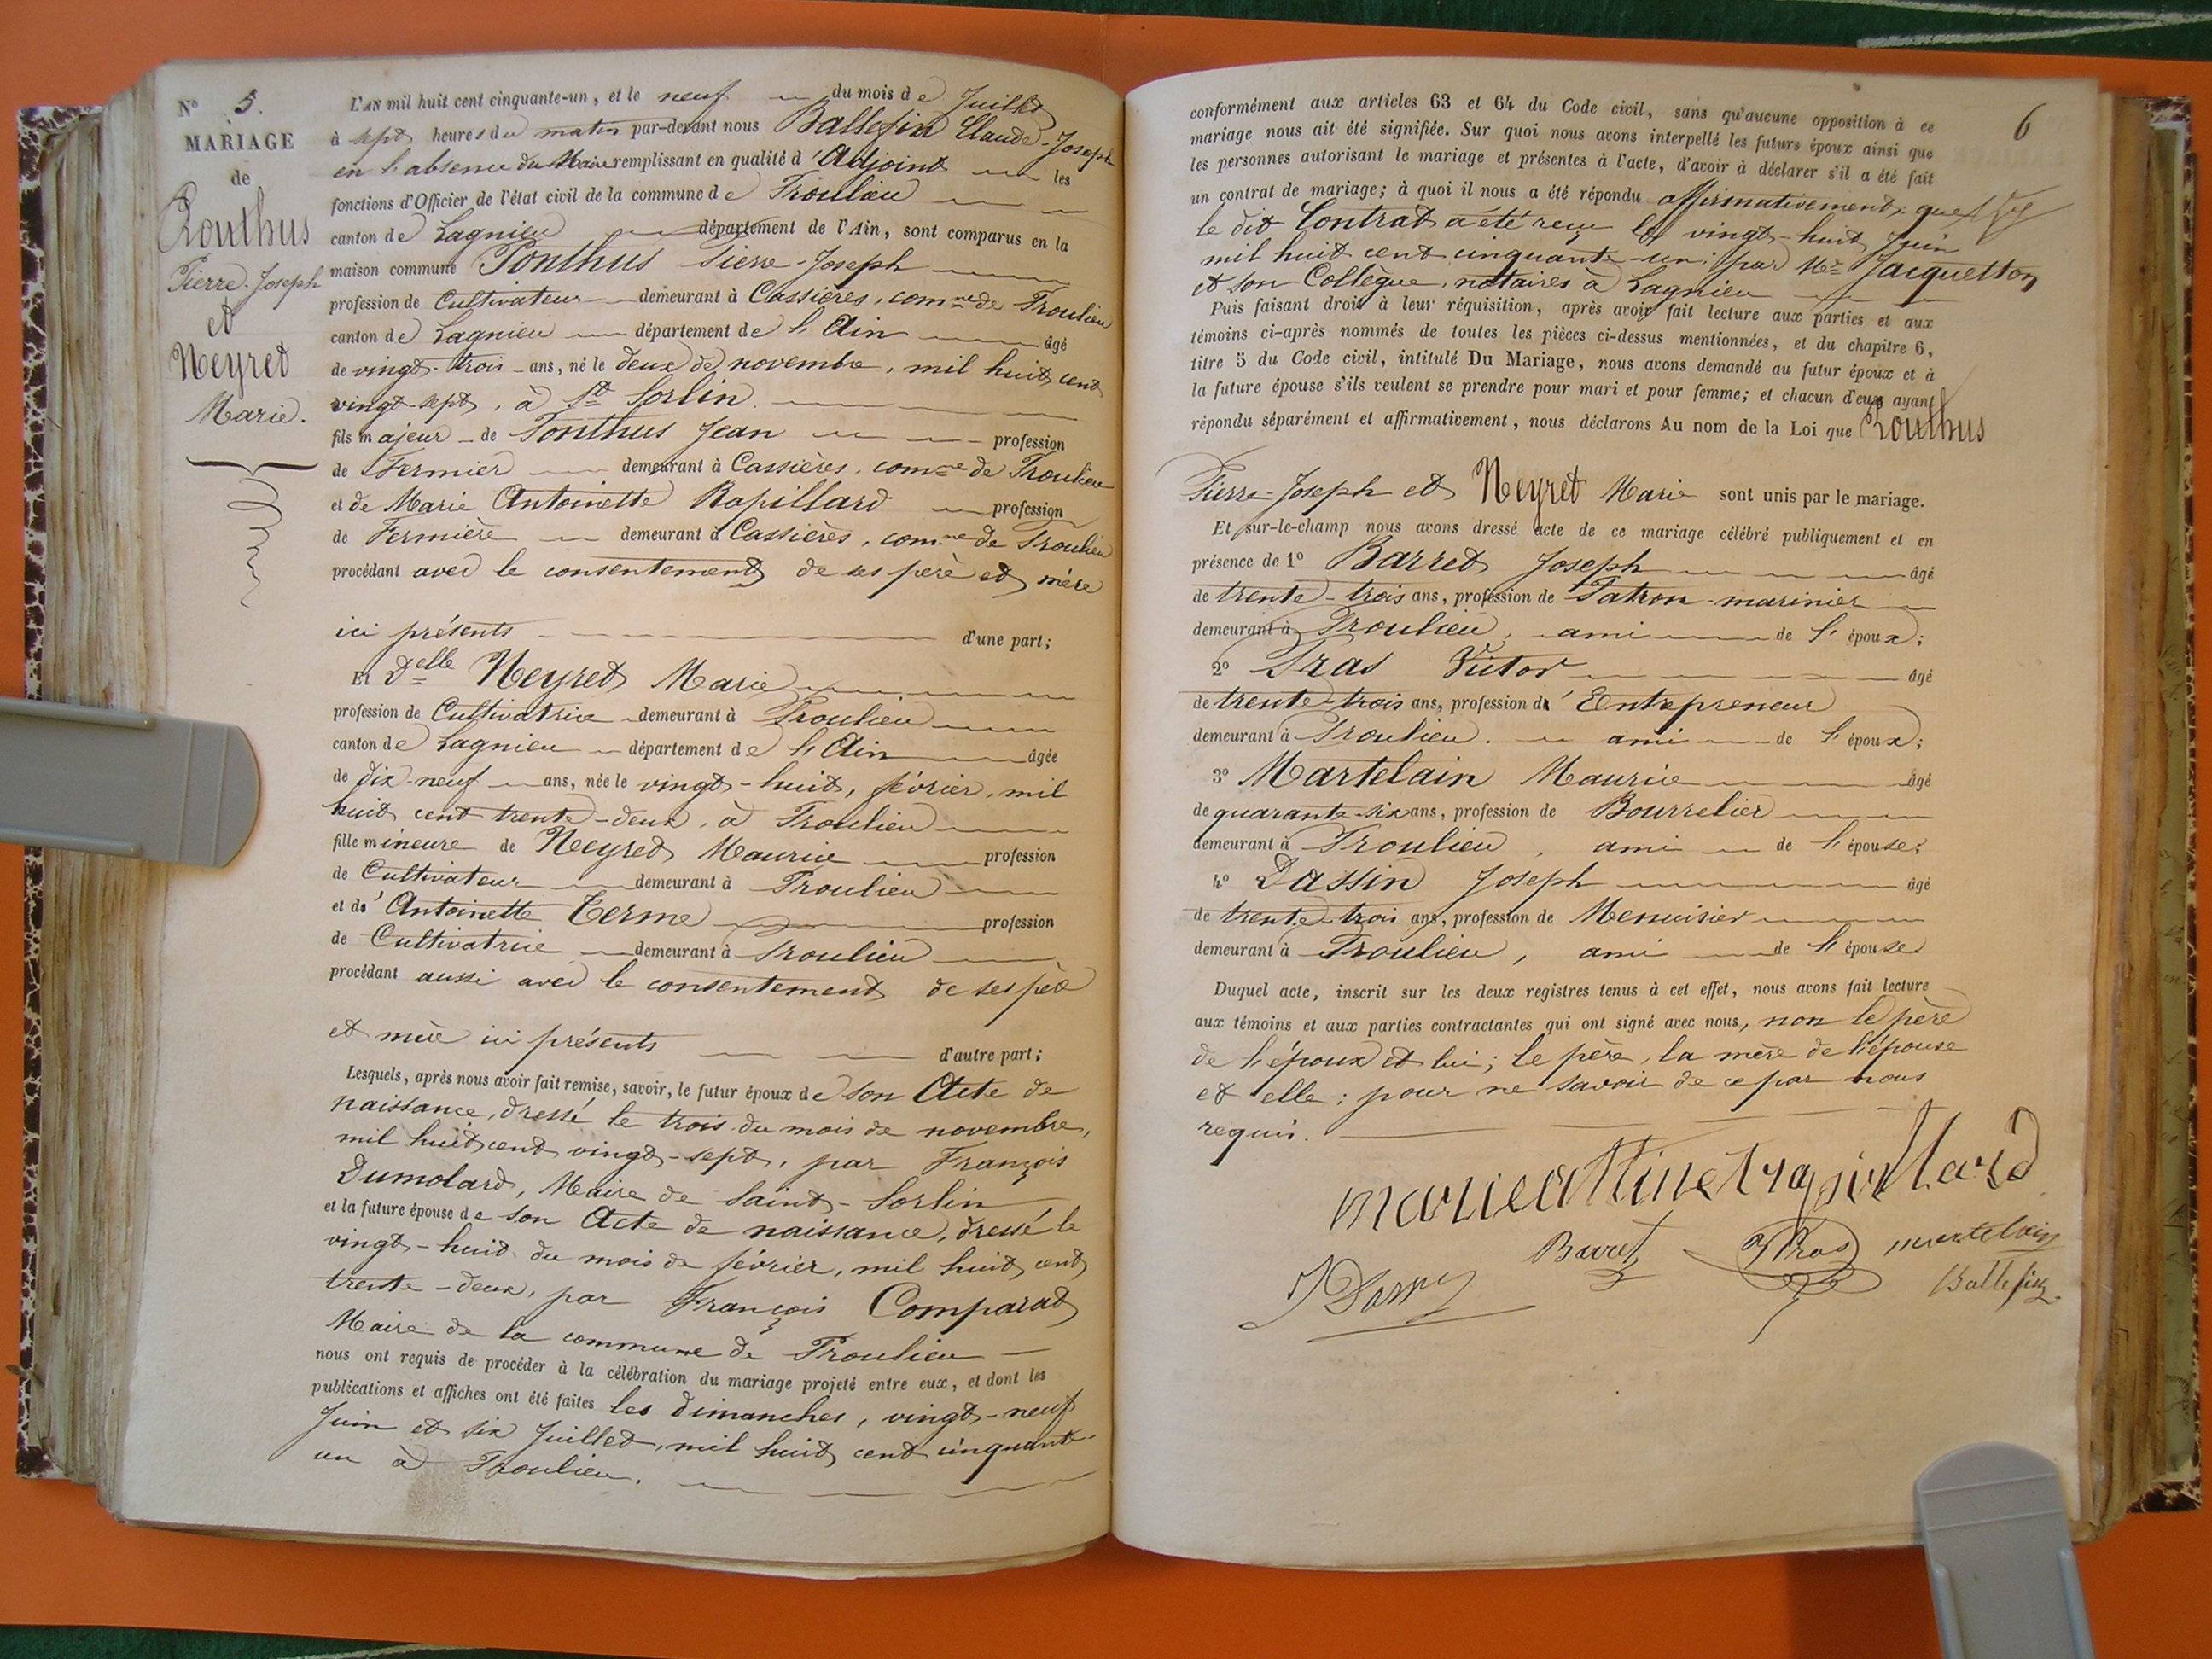 N° 5.
MARIAGE
de
Ponthus
Pierre-Joseph
et
Neyret
Marie.
L'AN mil huit cent cinquante-un, et le neuf du mois de Juillet
à sept heures du matin par-devant nous Ballefin Claude-Joseph
en l'absence du Maire remplissant en qualité d'Adjoint les
fonctions d'Officier de l'état civil de la commune de Proulieu
canton de Lagnieu département de l'Ain, sont comparus en la
maison commune Ponthus Pierre-Joseph
profession de Cultivateur demeurant à Cassières, com.ne de Proulieu
canton de Lagnieu département de l'Ain âgé
de vingt-trois ans, né le deux de novembre, mil huit cent
vingt-sept, à St Sorlin
fils majeur de Ponthus Jean profession
de Fermier demeurant à Cassières, com.ne de Proulieu
et de Marie Antoinette Rapillard profession
de Fermière demeurant à Cassières, com.ne de Proulieu
procédant avec le consentement de ses père et mère
ici présents d'une part;
Et Delle Neyret Marie
profession de Cultivatrice demeurant à Proulieu
canton de Lagnieu département de l'Ain âgée
de dix-neuf ans, née le vingt-huit, février, mil
huit cent trente-deux, à Proulieu
fille mineure de Neyret Maurice profession
de Cultivateur demeurant à Proulieu
et d'Antoinette Terme profession
de Cultivatrice demeurant à Proulieu
procédant aussi avec le consentement de ses père
et mère ici présents d'autre part;
Lesquels, après nous avoir fait remise, savoir, le futur époux de son Acte de
naissance, dressé le trois du mois de novembre,
mil huit cent vingt-sept, par François
Dumolard, Maire de Saint-Sorlin
et la future épouse de son Acte de naissance, dressé le
vingt-huit du mois de février, mil huit cent
trente-deux, par François Comparat
Maire de la commune de Proulieu
nous ont requis de procéder à la célébration du mariage projeté entre eux, et dont les
publications et affiches ont été faites les dimanches, vingt-neuf
Juin et six Juillet, mil huit cent cinquante-
un à Proulieu.
6
conformément aux articles 63 et 64 du Code civil, sans qu'aucune opposition à ce
mariage nous ait été signifiée. Sur quoi nous avons interpellé les futurs époux ainsi que
les personnes autorisant le mariage et présentes à l'acte, d'avoir à déclarer s'il a été fait
un contrat de mariage; à quoi il nous a été répondu affirmativement, que
le dit Contrat a été reçu le vingt-huit Juin
mil huit cent cinquante-un, par Me Jacquetton
et son Collègue, notaires à Lagnieu
Puis faisant droit à leur réquisition, après avoir fait lecture aux parties et aux
témoins ci-après nommés de toutes les pièces ci-dessus mentionnées, et du chapitre 6,
titre 5 du Code civil, intitulé Du Mariage, nous avons demandé au futur époux et à
la future épouse s'ils veulent se prendre pour mari et pour femme; et chacun d'eux ayant
répondu séparément et affirmativement, nous déclarons Au nom de la Loi que Ponthus
Pierre-Joseph et Neyret Marie sont unis par le mariage.
Et sur-le-champ nous avons dressé acte de ce mariage célébré publiquement et en
présence de 1° Barret Joseph âgé
de trente-trois ans, profession de Patron-marinier
demeurant à Proulieu, ami de l'époux;
2° Pras Victor âgé
de trente-trois ans, profession d'Entrepreneur
demeurant à Proulieu. ami de l'époux;
3° Martelain Maurice âgé
de quarante-six ans, profession de Bourrelier
demeurant à Proulieu, ami de l'épouse;
4° Dassin Joseph âgé
de trente-trois ans, profession de Menuisier
demeurant à Proulieu, ami de l'épouse
Duquel acte, inscrit sur les deux registres tenus à cet effet, nous avons fait lecture
aux témoins et aux parties contractantes qui ont signé avec nous, non le père
de l'époux et lui; le père, la mère de l'épouse
et elle; pour ne savoir de ce par nous
requis.
Barret Pras martelain
J Dassin Ballefin